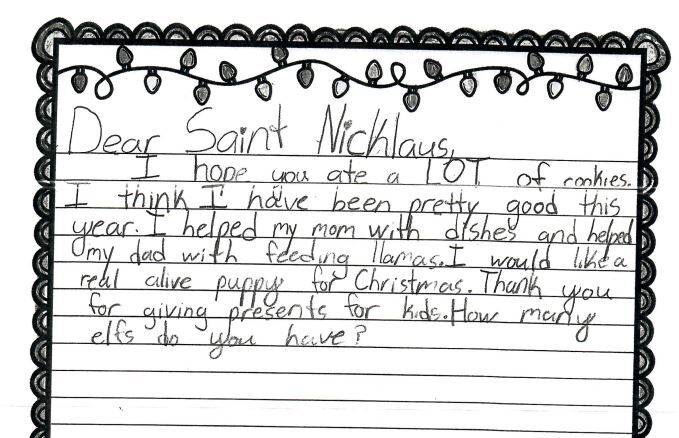 Dear Saint Nicklaus,
I hope you ate a LOT of cookies.
I think I have been pretty good this
year. I helped my mom with dishes and helped
my dad with feeding llamas. I would like a
real alive puppy for Christmas. Thank you
for giving presents for kids. How many
elfs do you have?